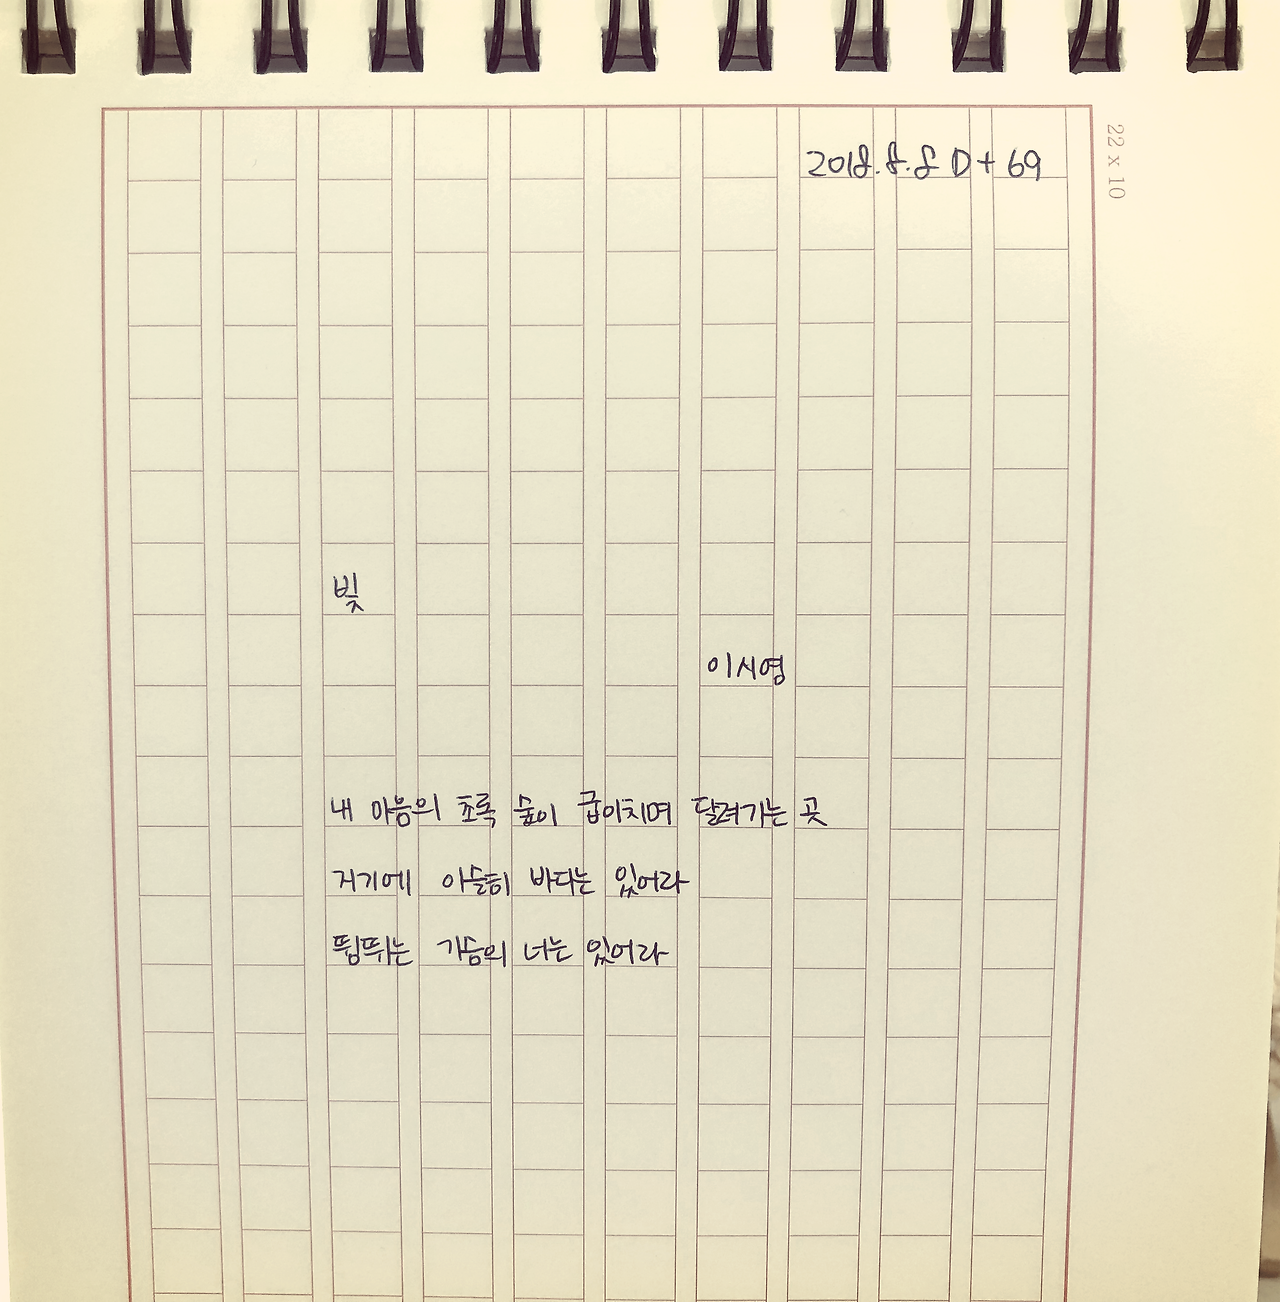 2018.8.8 D+69
22 x 10
빛
이시영
내 마음의 초록 숲이 굽이치며 달려가는 곳
거기에 아슬히 바다는 있어라
뜀뛰는 가슴의 너는 있어라